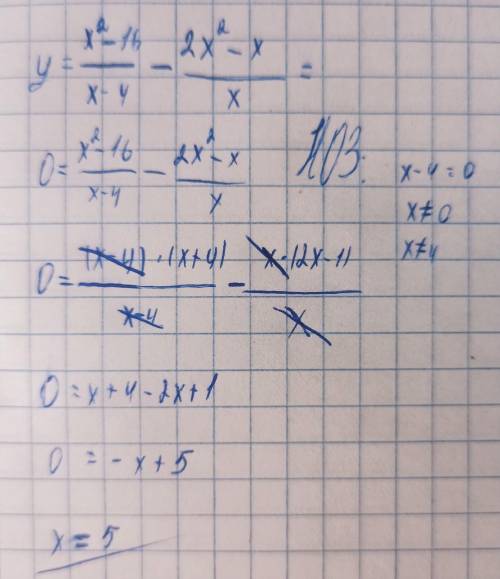 y = (x² - 16)/(x - 4) - (2x² - x)/x =
0 = (x² - 16)/(x - 4) - (2x² - x)/x
ОДЗ:
x - 4 = 0
x ≠ 0
x ≠ 4
0 = ((x - 4) · (x + 4))/(x - 4) - (x · (2x - 1))/x
0 = x + 4 - 2x + 1
0 = - x + 5
x = 5